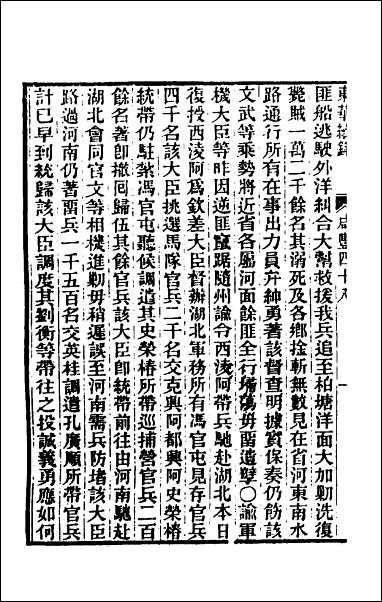 東華續錄 咸豐四十八 一
匪船逃駛外洋糾合大幫救援我兵追至柏塘洋面大加剿洗復
斃賊一萬二千餘名其溺死及各鄉捡斬無數見在省河東南水
路通行所有在事出力員弁紳勇著該督查明據實保奏仍飭該
文武等乘勢將近省各屬河面餘匪全行掃蕩毋留遺孽○諭軍
機大臣等昨因逆匪竄踞隨州諭令西淩阿帶兵馳赴湖北本日
復授西淩阿爲欽差大臣督辦湖北軍務所有馮官屯見存官兵
四千名該大臣挑選馬隊官兵二千名交克興阿都興阿史榮椿
統帶仍駐紮馮官屯聽候調遣其史榮椿所帶巡捕營官兵二百
餘名著卽撤囘歸伍其餘官兵該大臣卽統帶前往由河南馳赴
湖北會同官文等相機進剿毋稍遲誤至河南需兵防堵該大臣
路過河南仍著留兵一千五百名交英桂調遣孔廣順所帶官兵
計已早到統歸該大臣調度其劉衡等帶往之投誠義勇應如何